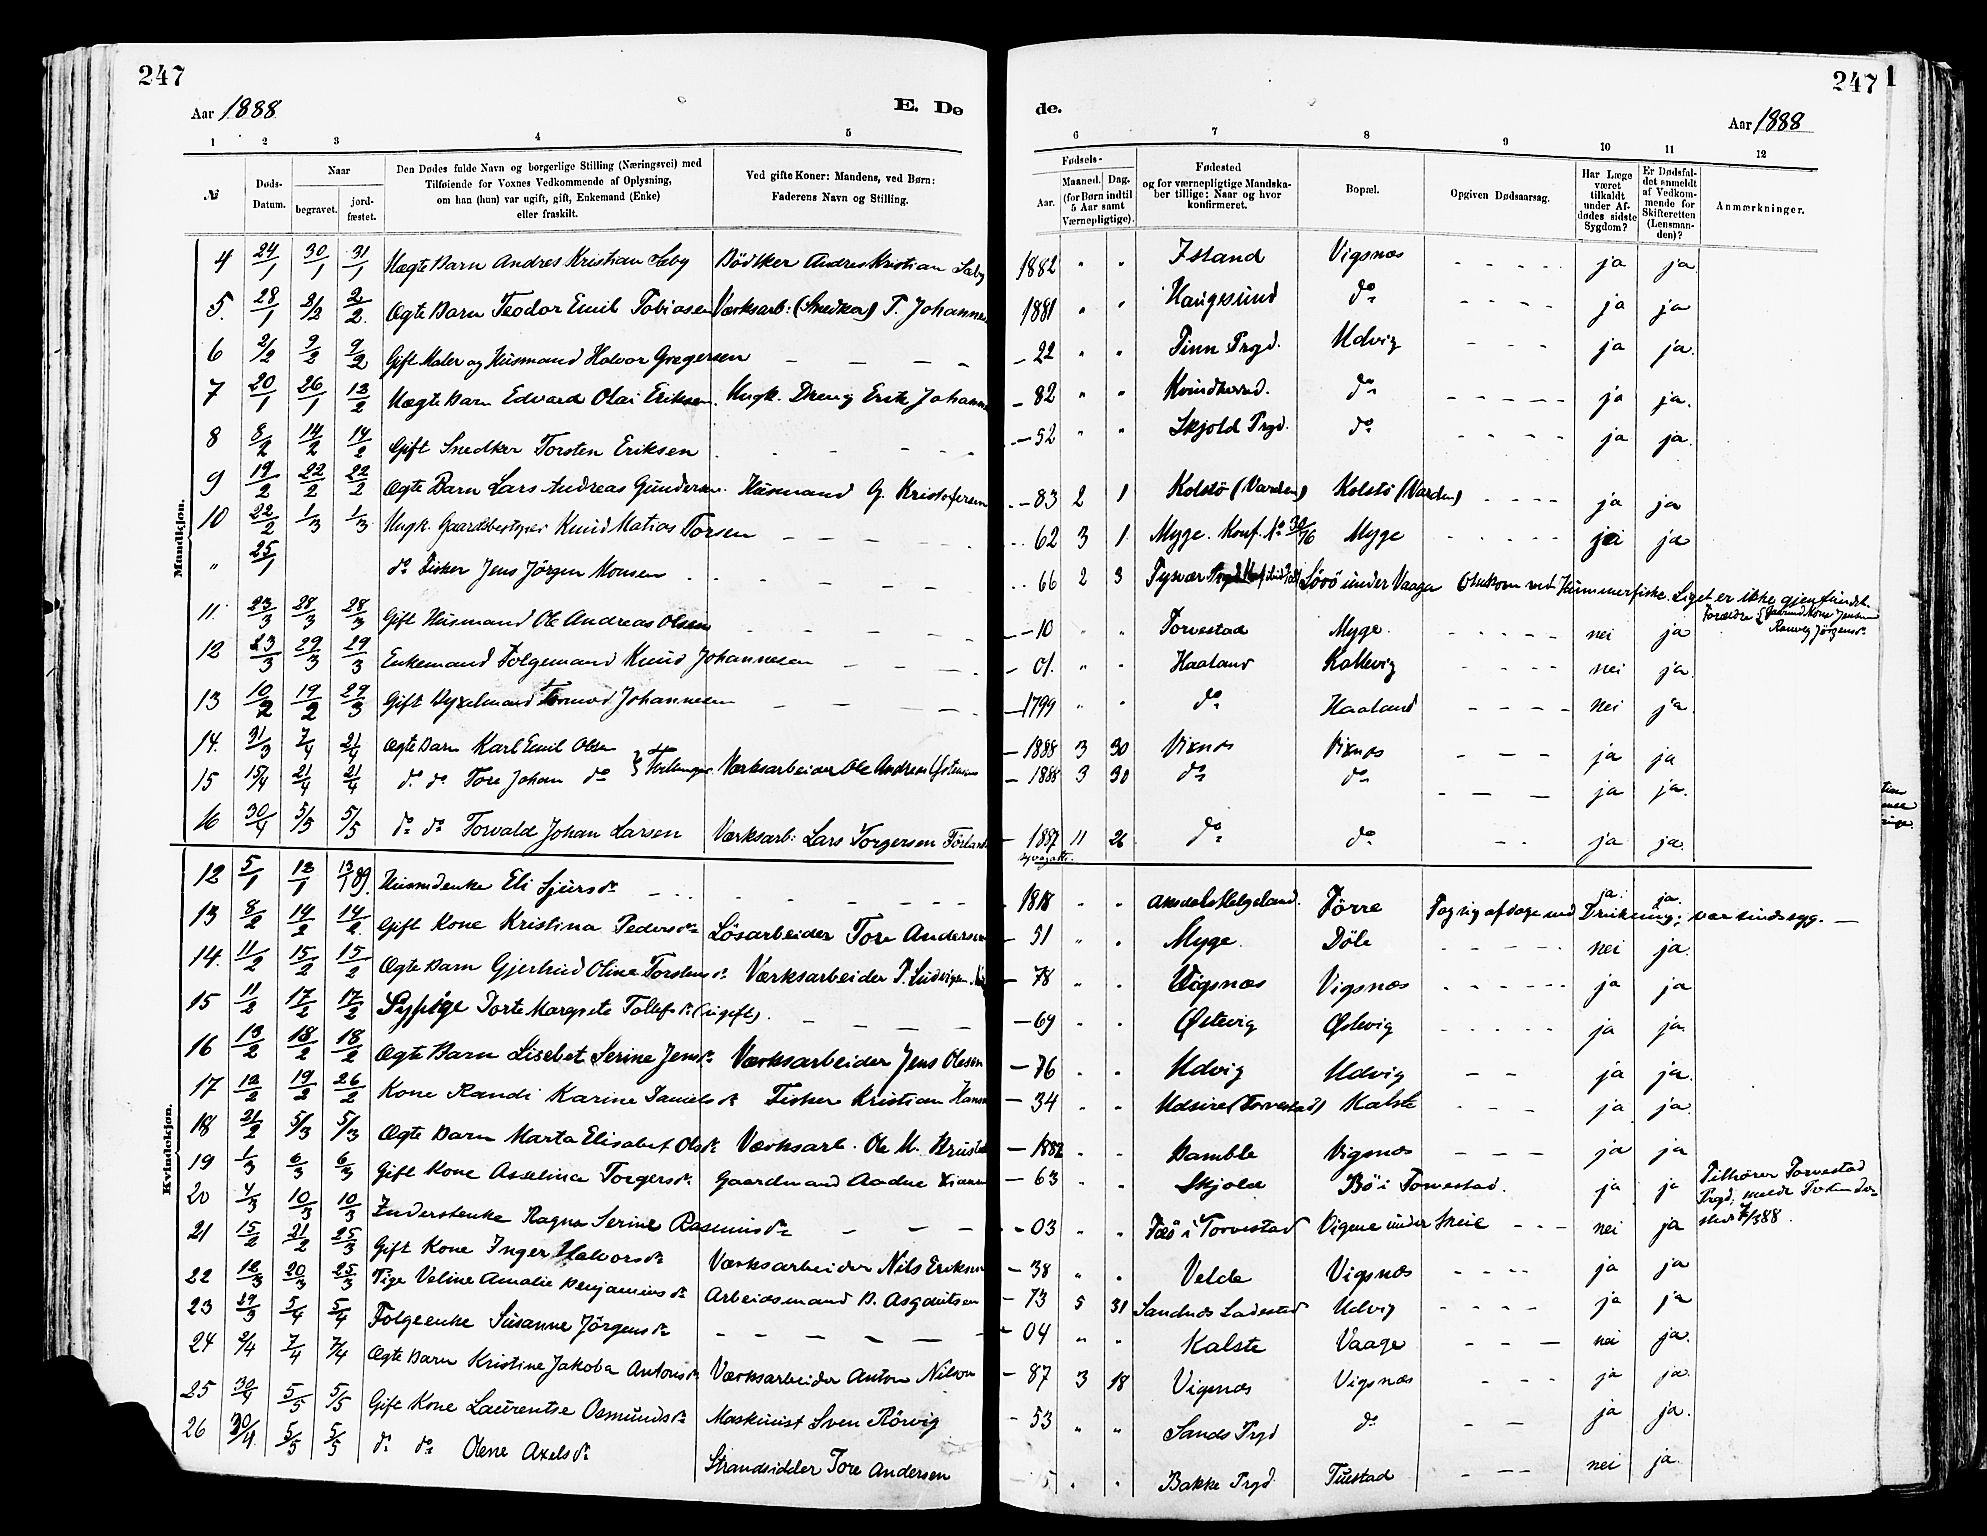 247
Aar 1888.
E. Døde.
247
1
Aar 1888
1 2 3 4 5 6 7 8 9 10 11 12
№
Døds-Datum.
Naar
begravet.
jordfæstet.
Den Dødes fulde Navn og borgerlige Stilling (Næringsvei) med
Tilføiende for Voxnes Vedkommende af Oplysning,
om han (hun) var ugift, gift, Enkemand (Enke)
eller fraskilt.
Ved gifte Koner: Mandens, ved Børn:
Faderens Navn og Stilling.
Fødsels-
Aar.
Maaned. Dag.
(for Børn indtil
5 Aar samt
Værnepligtige).
Fødested
og for værnepligtige Mandska-
ber tillige: Naar og hvor
konfirmeret.
Bopæl.
Opgiven Dødsaarsag.
Har Læge
været
tilkaldt
under Af-
dødes sidste
Sygdom?
Er Dødsfal-
det anmeldt
af Vedkom-
mende for
Skifteretten
(Lensman-
den)?
Anmærkninger.
Mandkjøn.
4 24/1 30/1 31/1 Uægte Barn Andres Kristian Sæby Bödtker Andres Kristian Sæby 1882 " " Island Vigsnæs - - - - ja ja
5. 28/1 2/2 2/2 Ægte Barn Teodor Emil Tobiasen Værksarb: (Snedker) T. Johanne 1881 " " Haugesund do - - - - ja ja
6 2/2 9/2 9/2 Gift Maler og Husmand Halvor Gregersen - - - - 22 " " Tinn Prgd. Udvig - - - ja ja.
7 20/1 26/1 13/2 Uægte Barn Edvard Olai Eriksen. Ungk. Dreng Erik Johanne - 82 " " Kvindherred. do - - - - - ja ja.
8 8/2 14/2 14/2 Gift Snedker Torsten Eriksen - - - - - 52 " " Skjold Prgd. do - - - - ja ja.
9 19/2 22/2 22/2 Ægte Barn Lars Andreas Gundersen. Husmand G. Kristofersen - 83 2 1 Kolstö (Varden) Kolstö (Varden) - - - - ja ja
10 22/2 1/3 1/3 Ungk. Gaardbestyrer Knud Matias Torsen - - - - 62 3 1 Myge. Konf. Myge - - - - - ja
" 25/1 do Fisker Jens Jörgen Monsen - - - - 66 2 3 Tysvær Lövö under Vaage Omkom ved Hummerfiske. Liget er ikke gjenfundet.
11. 23/3 28/3 28/3 Gift Husmand Ole Andreas Olsen - - - - 10 " " Torvestad Myge. - - - - nei ja
12 23/3 29/3 29/3 Enkemand Folgemand Knud Johannesen - - - - 01. " " Haaland Kallevig - - - - nei ja.
13 10/2 19/2 29/3 Gift Johannesen - - - - 1799 " " do Haaland - - - - nei ja.
14. 31/3 7/4 21/4 Ægte Barn Karl Emil Olsen } Tvillinger Værksarbeider Ole Andreas - 1888 3 30 Vixnæs Vixnæs - - - ja ja
15 15/4 21/4 21/4 do do Tore Johan do - 1888 3 30 do do - - - ja ja.
16 30/4 5/5 5/5 do do Torvald Johan Larsen Værksarb: Lars Torgersen - 1887 11 26 do do - - ja ja.
Kvindekjøn.
12 5/1 12/1 13/1 89. Husmdenke Eli Sjursdr - - - - 1818 " " Helgeland. Förre Tog sig af dage ved Drukning; var sindssyg. ja. ja.
13 8/2 14/2 14/2 Gift Kone Kristina Pedersdr Lösarbeider Tore Andersen - 51 " " Myge. Döle - - - - nei ja.
14. 11/2 15/2 15/2 Ægte Barn Gjertrud Oline Torstensdr. Værksarbeider T. Ludvigsen - 78 " " Vigsnæs Vigsnæs - - - - - ja ja
15 11/2 17/2 17/2 Sypige Dorte Margrete Tollefsdr (ugift). - - - - 69 " " Østevig Østevig - - - - - ja ja.
16 13/2 18/2 18/2 Ægte Barn Lisebet Serine Jensdr Værksarbeider Jens Olesen - 76 " " Udvig Udvig - - ja ja.
17 12/2 19/2 26/2 Kone Randi Karine Danielsdr Fisker Kristian - 34 " " Udsire (Torvestad) Kalstø - - - ja ja.
18 21/2 5/3 5/3 Ægte Barn Marta Elisabet Olsdr Værksarb. Ole M. - 1882 " " Bamble Vigsnæs - - - ja ja
19 1/3 6/3 6/3 Gift Kone Aselina Torgersdr Gaardmand Aadne - 63 " " Skjold Bö i Torvestad. ja ja Tilhörer Torvestad Prgd;
20 4/3 10/3 10/3 Inderstenke Ragna Serine Rasmusdr - - - 03 " " i Torvestad Vigene under - - - nei ja
21 15/2 21/2 25/3 Gift Kone Inger Halvorsdr Værksarbeider Nils Eriksen - 38 " " Velde Vigsnæs - - - - ja ja
22 12/3 20/3 25/3 Pige Veline Amalie Benjaminsdr Arbeidsmand B. Asgautsen - 73 5 31 Sandnæs Ladested Udvig - - - - ja ja
23 29/3 5/4 5/4 Folgeenke Susanne Jörgensdr - - - - - - 04 " " Kalstø Vaage - - - nei ja.
24 2/4 7/4 7/4 Ægte Barn Kristine Jakoba Antonsdr Værksarbeider Anton Nilsen - 87 3 18 Vigsnæs Vigsnæs - - - ja ja
25 30/4 5/5 5/5 Gift Kone Laurentse Osmundsdr Maskinist Sven Rörvig - 53 " " Sands Prgd do - - ja ja.
26 30/4 5/5 5/5 do do Olene Axelsdr Strandsidder Tore Andersen Bakke Prgd. Tuestad - - - nei ja.